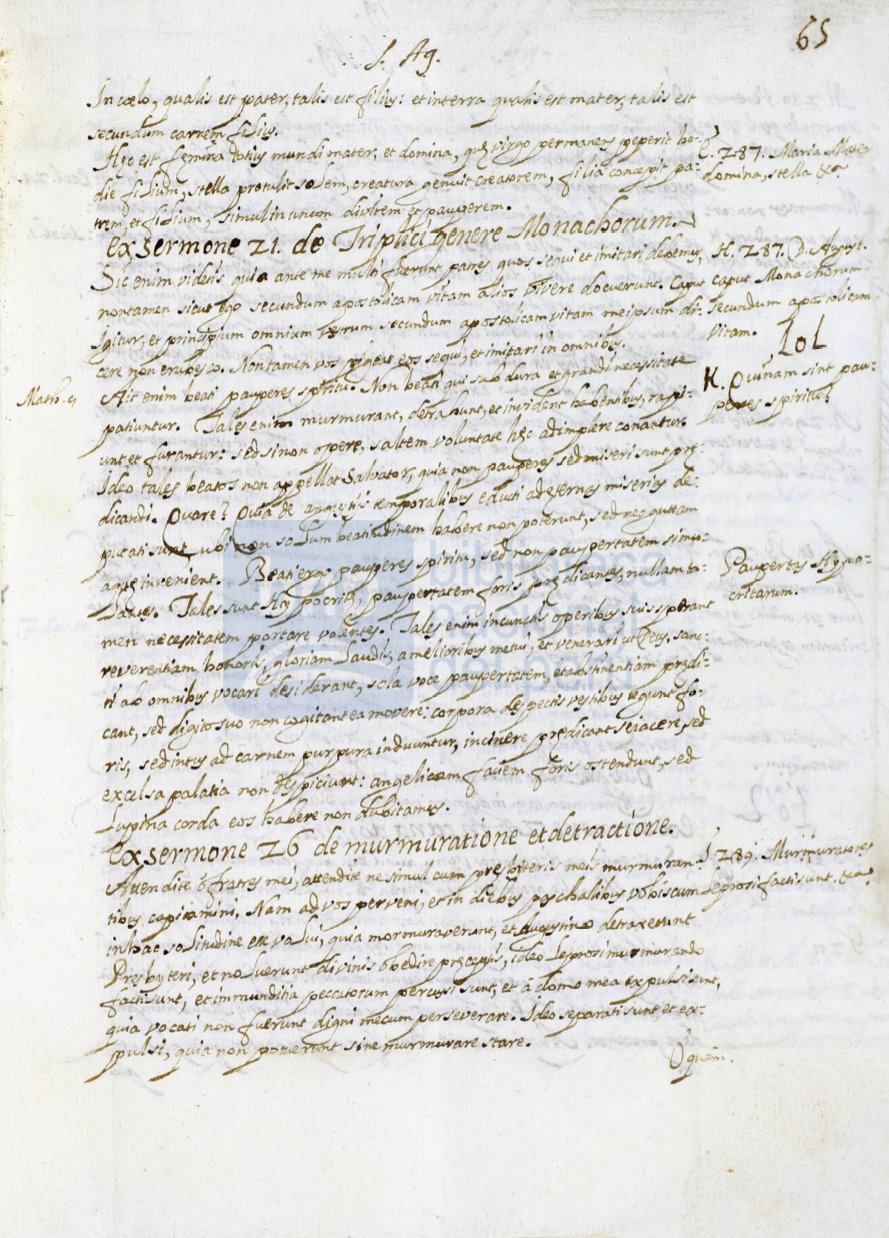 65
S. Ag.
In cœlo, qualis est pater, talis est filius: et in terra qualis est mater, talis est
secundum carnem filius.
Hęc est femina totius mundi mater, et domina, quę virgo permanens peperit ho-
die filium, stella protulit solem, creatura genuit creatorem, filia concepit pa-
trem, et filium, simul in unum divitem et pauperem.
287. Maria Mater
domina, stella &a
Ex sermone 21. de Triplici genere Monachorum.
Sic enim videtis quia ante me multi fuerunt patres quos sequi et imitari debemus,
non tamen sicut ego secundum apostolicam vitam alios vivere docuerunt. Caput
Igitur, et principium omnium vestrum secundum apostolicam vitam meipsum di-
cere non erubesco. Non tamen vos pigeat eos sequi, et imitari in omnibus.
H. 287. D. August.
caput Monachorum
secundum apostolicam
vitam.
101
Math. 5
Ait enim beati pauperes spiritu. Non beati qui sub dura et grandi necessitate
patiuntur. Tales enim murmurant, detrahunt, et invident habentibus, rapi-
unt et furantur: sed si non opere, saltem voluntate hęc adimplere conantur.
K. Quinam sint pau-
peres spiritu?
Ideo tales beatos non appellat Salvator, quia non pauperes sed miseri sunt prę-
dicandi. Quare? Quia de angustiis temporalibus educti ad eternas miserias de-
putati sunt ubi non solum beatitudinem habere non poterunt, sed nec guttam
aquę invenient. Beati ergo pauperes spiritu, sed non paupertatem simu-
lantes. Tales sunt Hypocritę, paupertatem foris prędicantes, nullam ta-
men necessitatem portare volentes. Tales enim in cunctis operibus suis sperant
reverentiam honoris, gloriam laudis, a melioribus metui, et venerari ut Deus, sanc-
ti ab omnibus vocari desiderant, sola voce paupertatem, et abstinentiam prędi-
cant, sed digito suo non cogitant ea movere: corpora despectis vestibus tegunt fo-
ris, sed intus ad carnem purpura induuntur, in cinere prędicant se iacere, sed
excelsa palatia non despiciunt: angelicam faciem foris ostendunt, sed
Lupina corda eos habere non dubitamus.
Paupertas Hypo-
critarum.
Ex sermone 26 de murmuratione et detractione.
Attendite ô fratres mei, attendite ne simul cum presbiteris meis murmuran-
tibus capiamini, Nam ad vos perveni, et in diebus paschalibus vobiscum
in hac solitudine esse volui, quia mormuraverunt, et Augustino detraxerunt
Presbyteri, et noluerunt divinis obedire pręceptis, ideo leprosi murmurando
facti sunt, et immunditia peccatorum percussi sunt, et à domo mea expulsi sunt,
quia vocati non fuerunt digni mecum perseverare. Ideo separati sunt, et ex-
pulsi, quia non potuerunt sine murmurare stare.
289. Murmuratores
leprosi facti sunt. &a.
O quam.
biblioteca
nacional
del perú